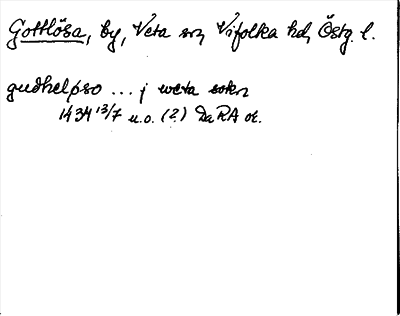 Gottlösa, by, Veta sn, Vifolka hd, Östg. l.
gudhelpso ... j weta sokn
1434 13/7 u.o. (?) Da RA or.